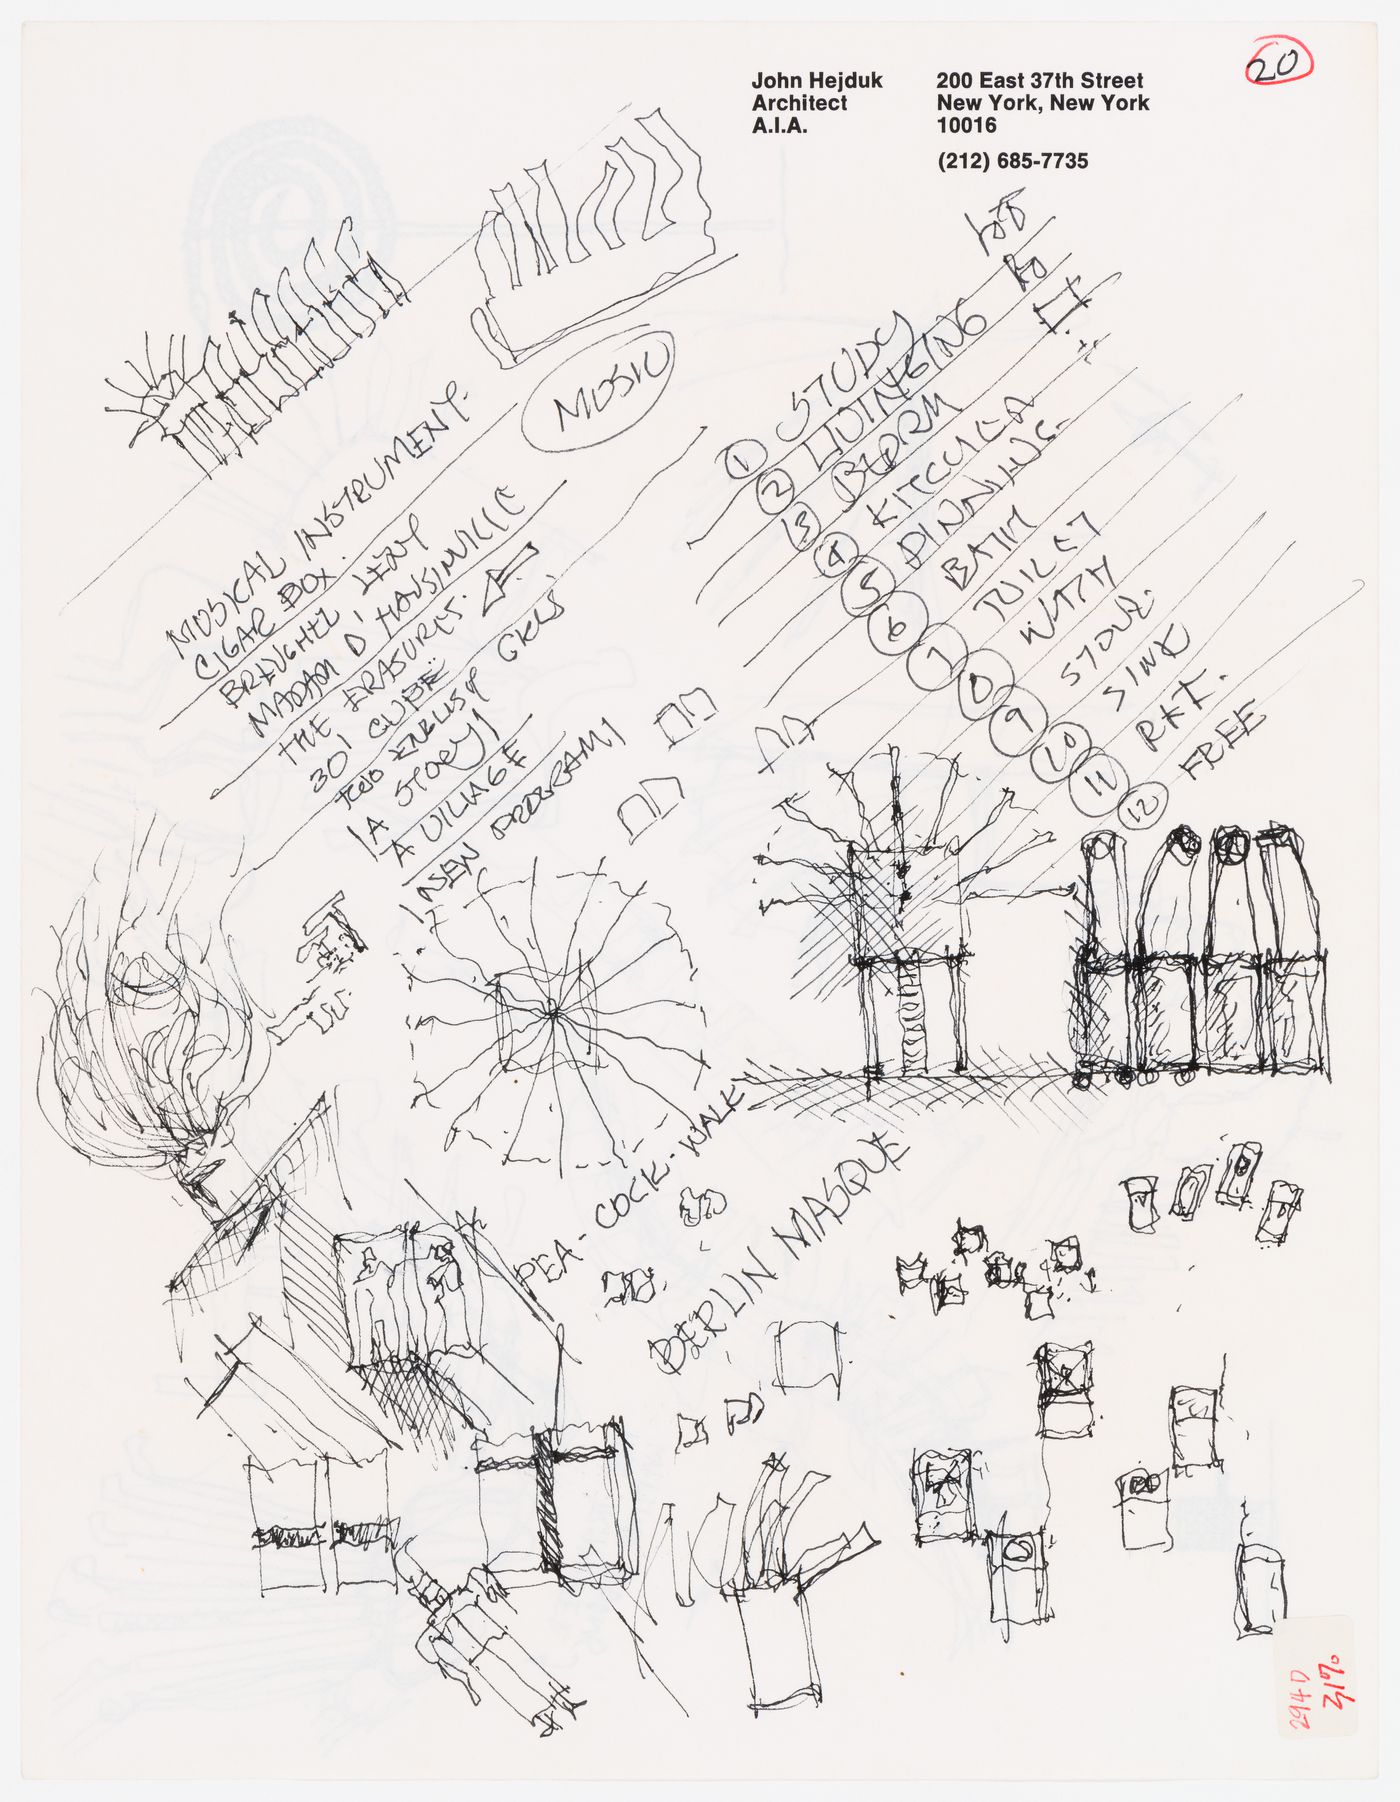 20
John Hejduk
Architect
A.I.A.
200 East 37th Street
New York, New York
10016
(212) 685-7735
MUSIC
MUSICAL INSTRUMENT.
CIGAR BOX.
BREUGHEL LENT
MADAM D'HAUSINVILLE
THE ERASURES.
30' CUBE
TWO ENGLISH GIRLS
A STORY
A VILLAGE
PROGRAM
① STUDY
② LIVING
③ BEDRM
④ KITCHEN
⑤ DINNING.
⑥ BATH
⑦ TOILET
8
⑨ STOVE.
⑩ SINK
⑪ REF.
⑫ FREE
PEA-COCK-WALK
BERLIN MASQUE
294D
31%